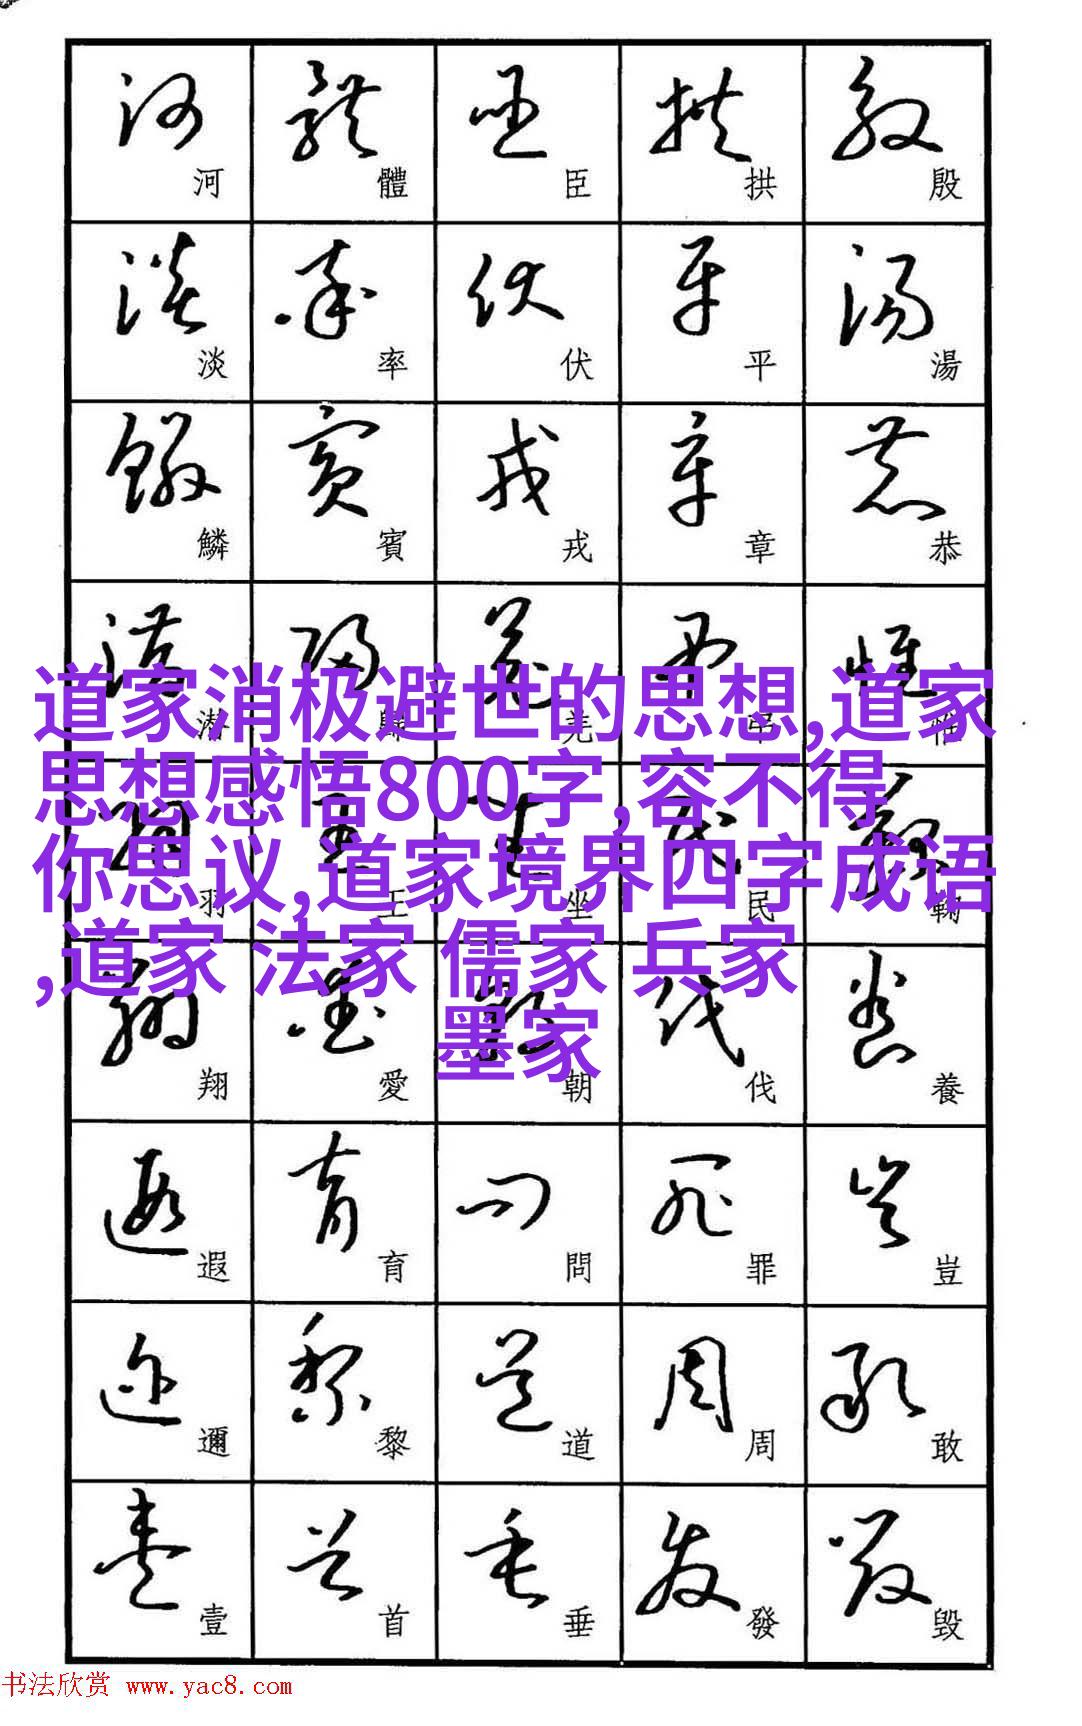 河 體 臣 拱 殷
淡 率 伏 平 湯
鱗 賓 戎 章 恭
潜 歸 羌 弔 惟
道家消极避世的思想,道家
思想感悟800字,容不得
你思议,道家境界四字成语
,道家 法家 儒家 兵家
墨家
羽 王 坐 民 鞠
翔 愛 朝 伐 養
遐 育 問 罪 豈
邇 黎 道 周 敢
壹 首 垂 發 毀
书法欣赏 www.yac8.com